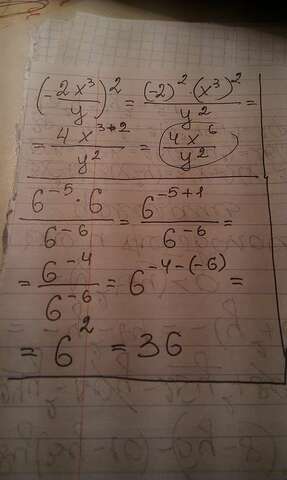 (-2x³/y)² = (-2)²·(x³)²/y² =
= 4x³⁺²/y² = 4x⁶/y²
6⁻⁵·6/6⁻⁶ = 6⁻⁵⁺¹/6⁻⁶ =
= 6⁻⁴/6⁻⁶ = 6⁻⁴⁻⁽⁻⁶⁾ =
= 6² = 36